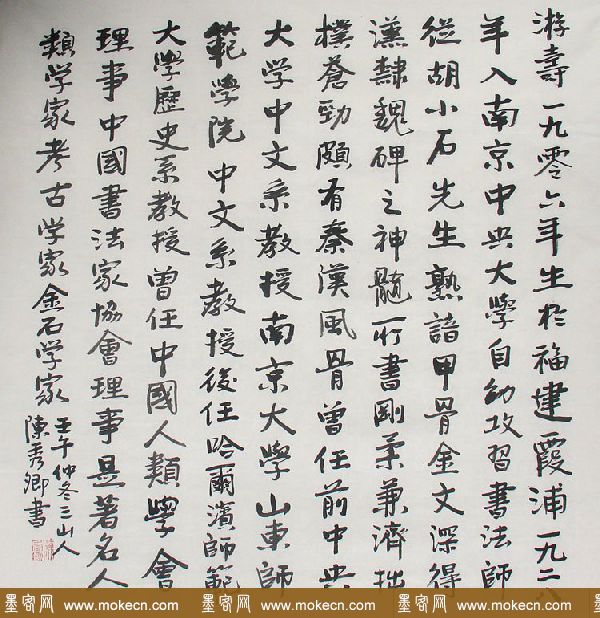 游壽一九零六年生於福建霞浦一九二八
年入南京中央大學自幼攻習書法師
從胡小石先生熟諳甲骨金文深得
漢隸魏碑之神髓所書剛柔兼濟拙
樸蒼勁頗有秦漢風骨曾任前中央
大学中文系教授南京大學山東師
範學院中文系教授後任哈爾濱師範
大學歷史系教授曾任中國人類學會
理事中國書法家協會理事是著名人
類学家考古学家金石学家
壬午仲冬三山人
陳秀卿書
墨客网 www.mokecn.com 墨客网 www.mokecn.com 墨客网 www.mokecn.com